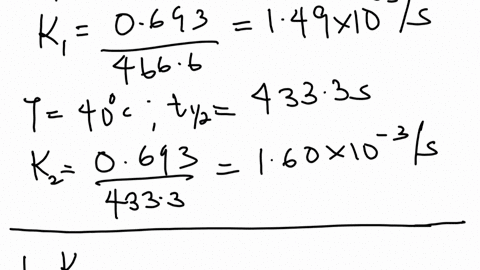 K₁ = 0.693 / 466.6 = 1.49×10⁻³/s
T = 40°c ; t½ = 433.3s
K₂ = 0.693 / 433.3 = 1.60×10⁻³/s